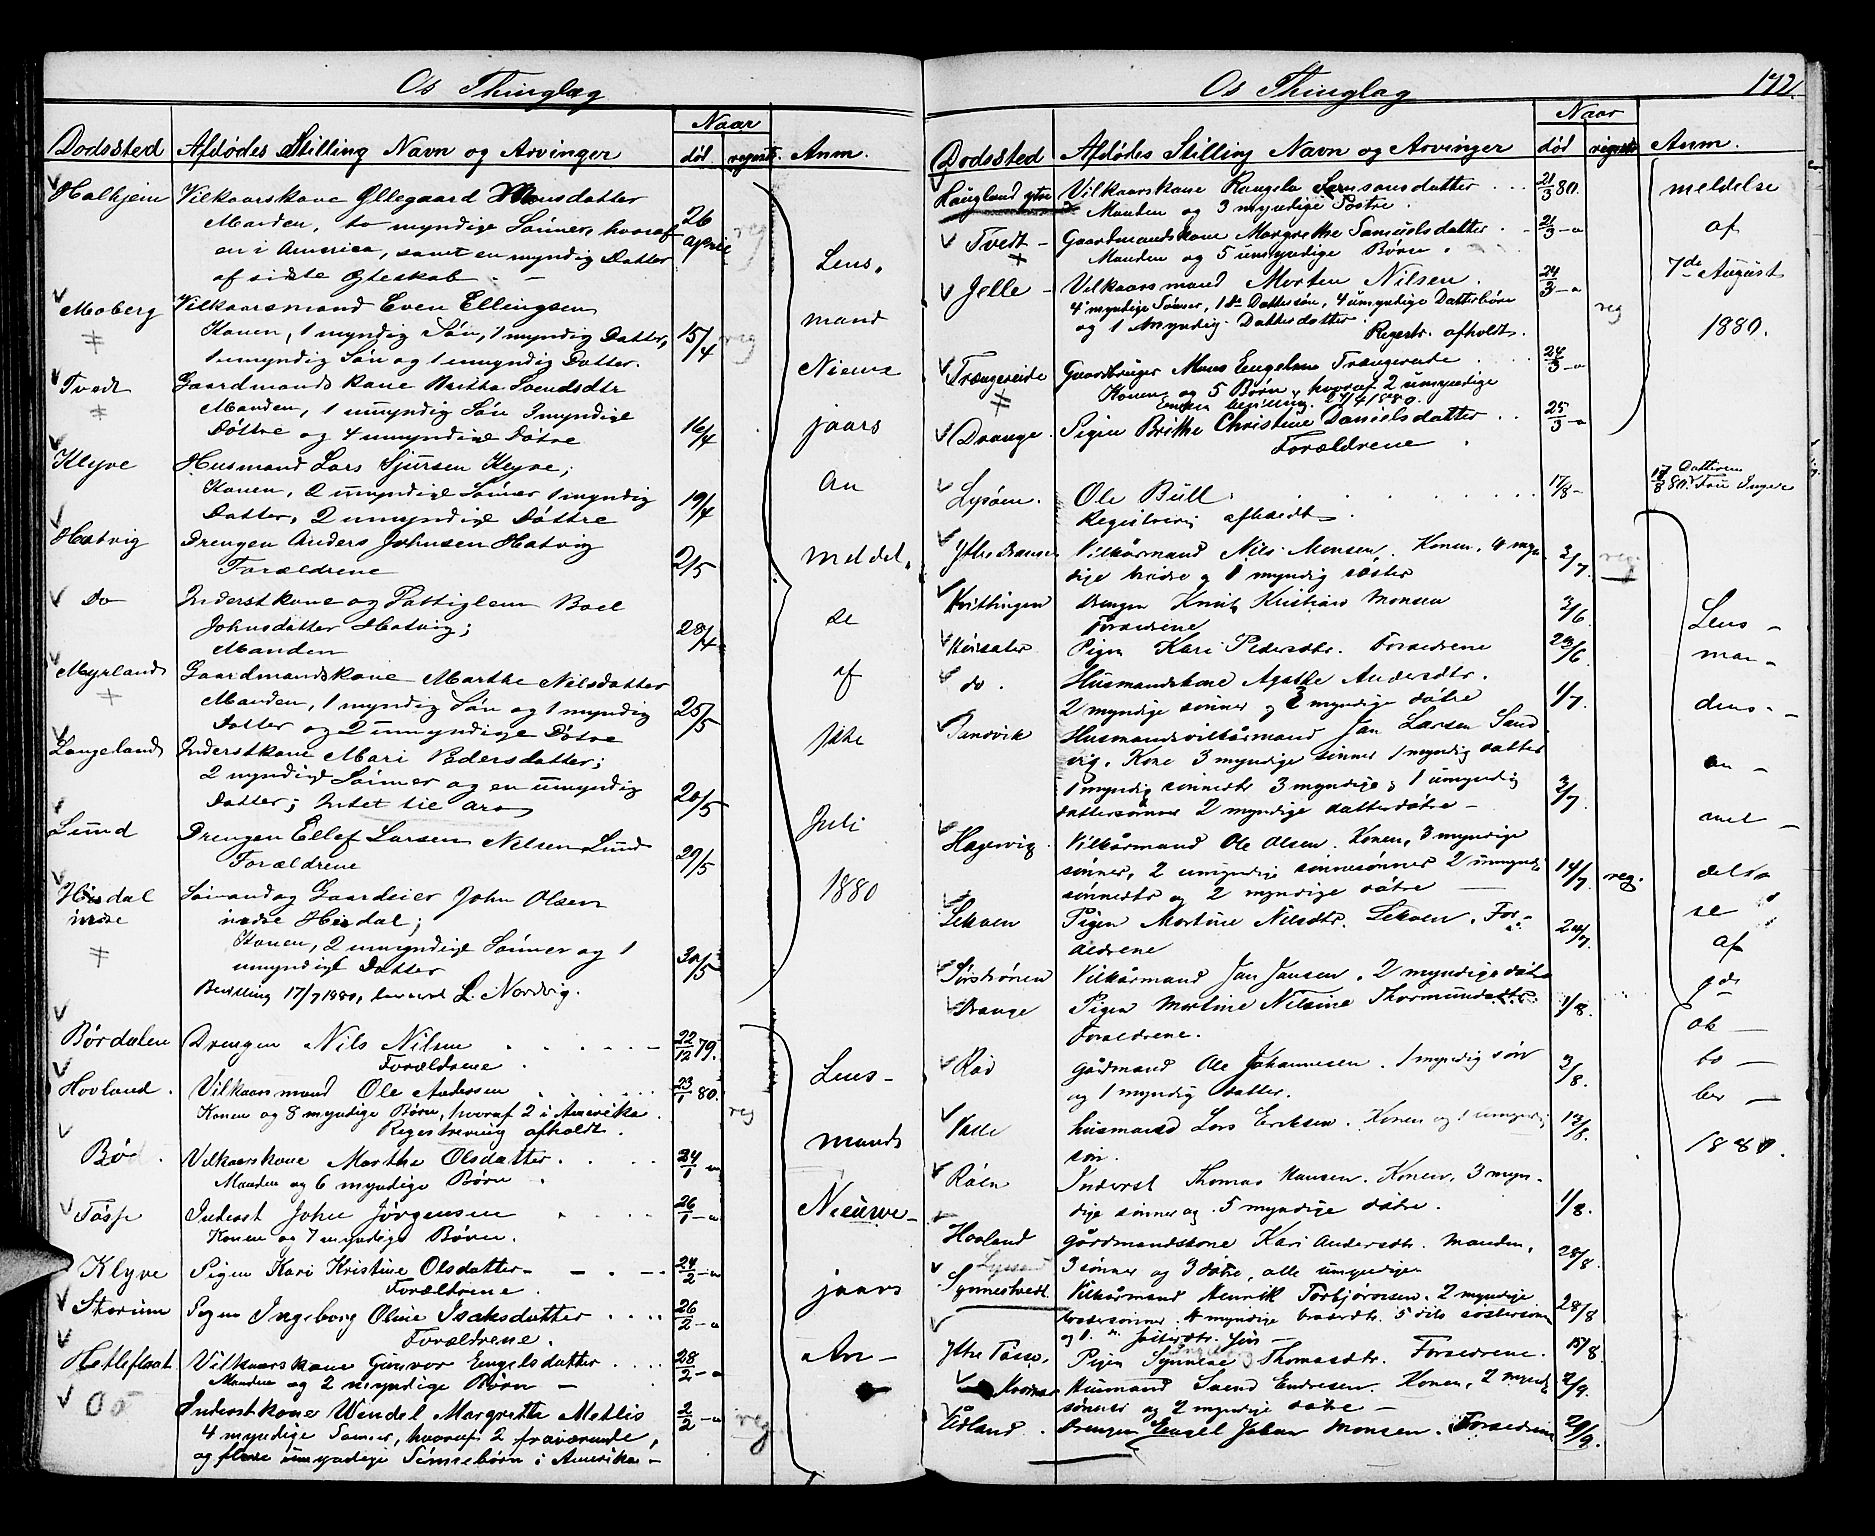 Os Thinglag
Naar
Dødssted Afdødes Stilling Navn og Arvinger død registr. Anm.
Halhjem Vilkaarskone Øllegaard Monsdatter
Manden, to myndige Sønner, hvoraf 26 april reg
en i America, samt en myndig Datter
af sidste Ægteskab
Moberg Vilkaarsmand Even Ellingsen
Konen, 1 myndig Søn, 1 myndig Datter, 15/4 reg
1 umyndig Søn og 1 umyndig Datter.
Tvedt Gaardmandskone Bertha Svendsdtr
Manden, 1 umyndig Søn 3 myndige
Døttre og 4 umyndige Døtre 16/4
Klyve Husmand Lars Sjursen Klyve;
Konen, 2 umyndige Sønner 1 myndig 19/4
Datter, 2 umyndige Døttre
Hatvig Drengen Anders Johnsen Hatvig
Forældrene 2/5
Do Inderstkone og Fattiglem Boel
Johnsdatter Hatvig; 28/4
Manden
Myrland Gaardmandskone Marthe Nilsdatter
Manden, 1 myndig Søn og 1 myndig 25/5
Datter og 2 umyndige Døtre
Langeland Inderstkone Mari Pedersdatter;
2 myndige Sønner og en umyndig 20/5
Datter; Intet til arv
Lund Drengen Ellef Larsen Nilsen Lund
Forældrene 29/5
Hisdal Søemand og Gaardeier John Olsen
nedre Hisdal;
Konen, 2 umyndige Sønner og 1 30/5
umyndige Datter
Bevilling 17/7 1880, L. Nordvig.
Lens.
mand
Nieuwe
jaars
An
meldel.
se
af
Juli
1880
Børdalen Drengen Nils Nilsen 22/12 79.
Forældrene
Hovland. Vilkaarsmand Ole Andersen 23/1 80.
Konen og 8 myndige Børn, hvoraf 2 i Amerika. reg
Registrering afholdt.
Bød. Vilkaarskone Marthe Olsdatter. 24/1 -"
Manden og 6 myndige Børn.
Tøsse Inderst John Jørgensen 26/1 -"
Konen og 7 myndige Børn.
Klyve Pigen Kari Kristine Olsdatter 24/2 -"
Forældrene.
Storum Pigen Ingeborg Oline Isaksdatter 26/2 -"
Forældrene.
Hetleflaat Vilkaarskone Gunvor Engelsdatter 28/2 -"
Manden og 2 myndige Børn -
Os Inderstkone Wendel Margrethe Metlis 2/2 -" reg
4 myndige Sønner, hvoraf 2 fraværende,
og flere umyndige Sønnebørn i Amerika -
Lens-
mands
Nieuwe-
jaars
An-
Os Thinglag 172.
Naar
Dødssted Afdødes Stilling Navn og Arvinger død registr Anm.
Haugland ytre Vilkaarskone Rangela Samsonsdatter 21/3 80.
Manden og 3 myndige Søstre.
Tvedt - Gaardmandskone Margrethe Samuelsdatter 21/3 -"
Manden og 5 umyndige Børn.
Jelle - Vilkaarsmand Morten Nilsen. 24/3 -"
4 myndige Sønner, 1 do Dattersøn, 4 umyndige Datterbørn reg
og 1 myndig Datterdatter.
Registr. afholdt.
Trængereide Gaardbruger Mons Engelsen Trængereide 24/3 -"
Konen og 5 Børn, hvoraf 2 umyndige
Drange. Pigen Brithe Christine Danielsdatter 25/3 -"
Forældrene
meldelse
af
7de August
1880.
Lysøen. Ole Bull 17/8 -
Registrering afholdt.
Ytre Drange Vilkårmand Nils Monsen, Konen, 4 myn- 2/7. reg.
dige brødre og 1 myndig søster
Kvithingen Drengen Knut Kristian Monsen 3/6
Foræedrene
Pigen Kari Pedersdtr. Foræedrene
do. Husmandskone Agathe Andersdtr.
2 myndige sønner og 2 myndige døtre 1/7.
Sandvik Husmandsvilkårmand Jan Larsen Sand
vig. Kone 3 myndige sønner 1 myndig datter
1 myndig sønnedtr 3 myndige og 1 umyndig 3/7.
dattersønner 2 myndige datterdøtre -
Hagevig. Vilkårmand Ole Olsen. Konen, 3 myndige
sønner, 2 umyndig sønnesønner 2 umyndi 14/7 reg.
sønnedtr og 2 myndige døtre
Lekven Pigen Martine Nilsdtr. Lekven, For- 24/7.
ældrene
Sørstrønen Vilkårmand Jan Jansen. 2 myndige døtre
Drange Pigen Martine Nilsine Thormundsdtr. 1/8.
Foræedrene.
Rød gårdmand Ole Johannesen. 1 myndig søn 2/8.
og 1 myndig datter.
Valle husmand Lars Eriksen. Konen og 1 umyndig 13/8.
søn.
Røen Inderst Thomas Hansen. Konen, 3 myn-
dige sønner og 5 myndige døtre. 1/8.
Hovland gårdmandskone Kari Andersdtr. manden,
3 sønner og 3 døtre, alle umyndige 28/8.
Lysen
Synnestvedt Vilkårmand Henrik Torbjørnsen. 2 myndige
brodersønner 4 myndige broderdtr. 5 dito søstersønner 28/8
Ytre Tøsse. Pigen Synneve Thomasdtr. Foræedrene. 15/8.
Husmand Svend Endresen. Konen, 2 myndi 2/9.
sønner og 2 myndige døtre -
Lidland. Drengen Engel Johan Monsen. Foræedrene 20/9.
Lens -
man -
dens -
an -
mel -
delse
af
ok -
to -
ber -
1880.